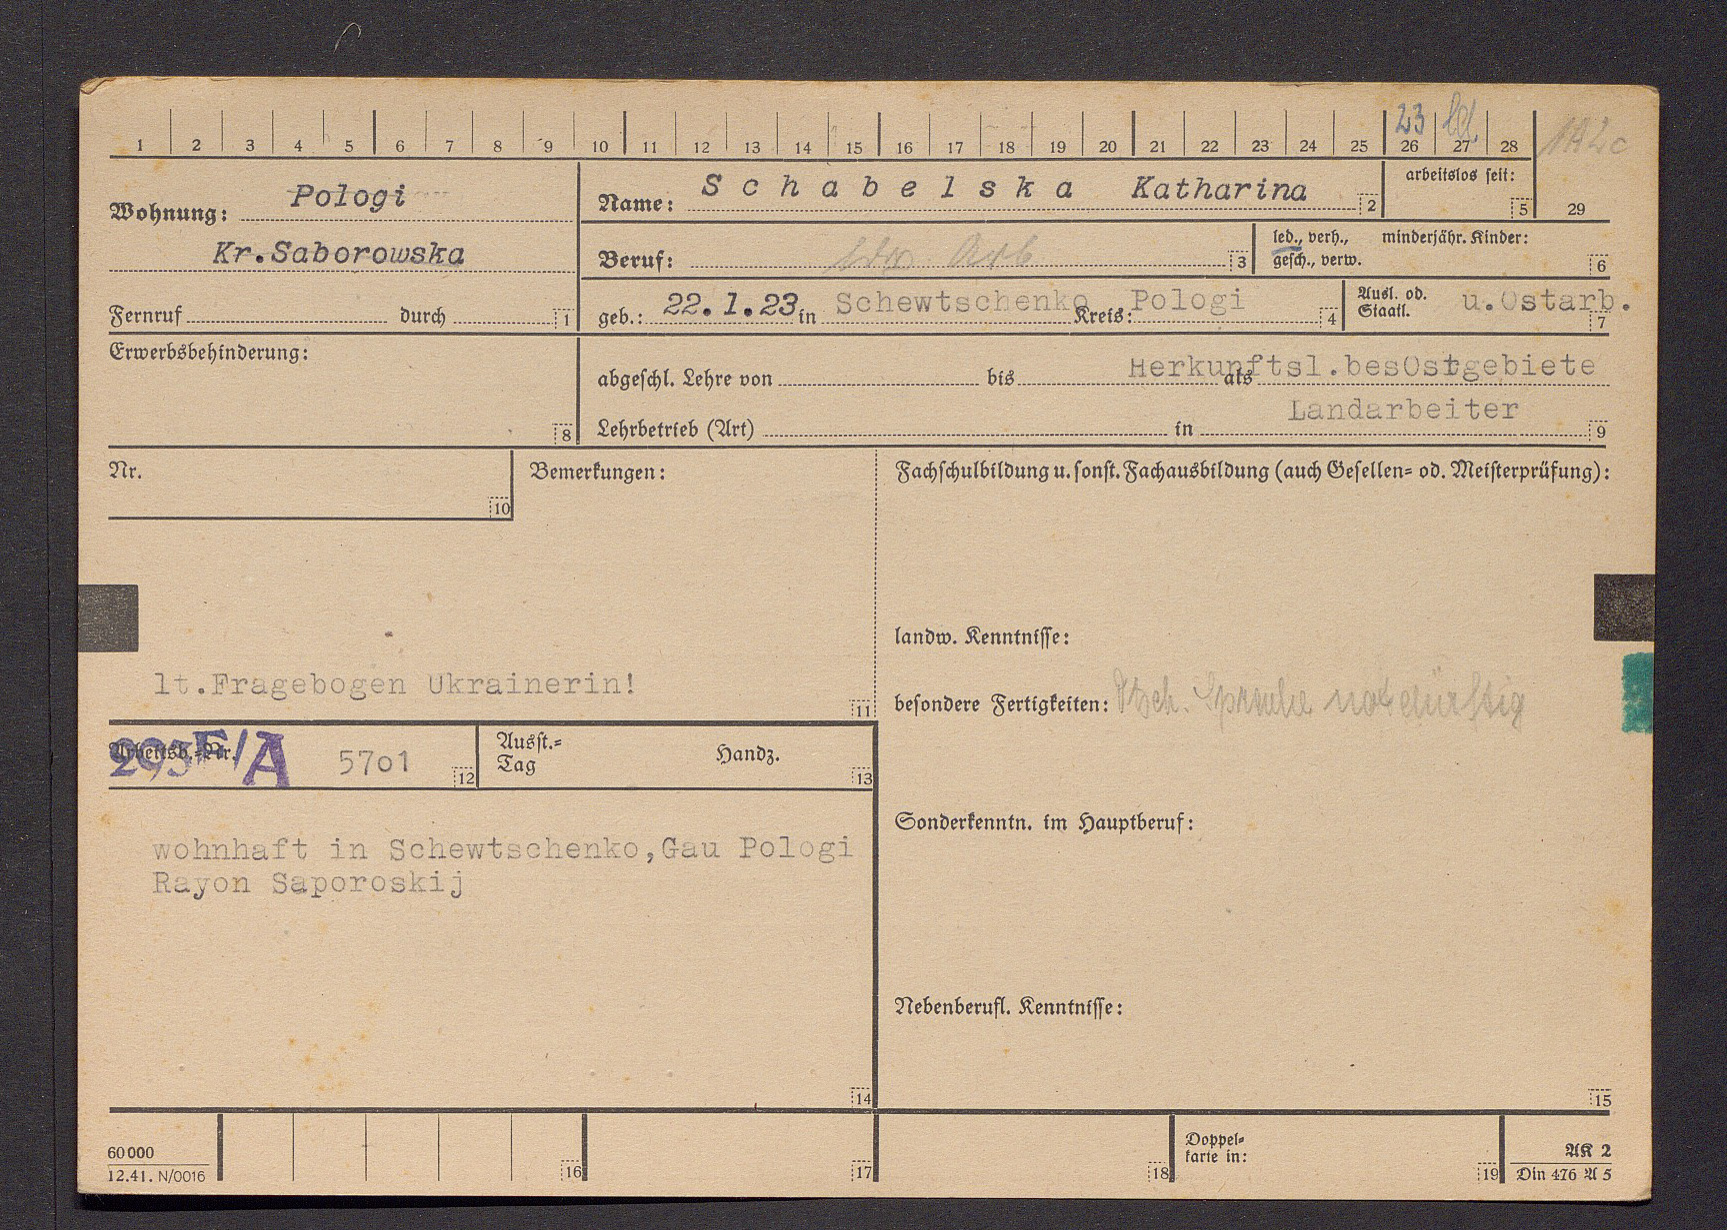 1 2 3 4 5 6 7 8 9 10 11 12 13 14 15 16 17 18 19 20 21 22 23 24 25 26 27 28
23 led.
1A2c
Wohnung: Pologi
Kr.Saborowska
Fernruf durch 1
Name: Schabelska Katharina 2
arbeitslos seit: 5
29
Beruf: ldw Arb 3
led., verh., minderjähr. Kinder:
gesch., verw. 6
geb.: 22.1.23 in Schewtschenko Kreis: Pologi 4
Ausl. od. Staatl. u.Ostarb. 7
Erwerbsbehinderung: 8
abgeschl. Lehre von bis als Herkunftsl.besOstgebiete
Landarbeiter
Lehrbetrieb (Art) in 9
Nr. 10
Bemerkungen:
lt.Fragebogen Ukrainerin!
11
Fachschulbildung u. sonst. Fachausbildung (auch Gesellen- od. Meisterprüfung):
landw. Kenntnisse:
besondere Fertigkeiten: Dtsch. Sprache notdürftig
Sonderkenntn. im Hauptberuf:
Nebenberufl. Kenntnisse:
15
Arbeitsb.-Nr. 293F/A 5701 12
Ausst.-
Tag Handz. 13
wohnhaft in Schewtschenko,Gau Pologi
Rayon Saporoskij
14
60000
12.41. N/0016
16
17
18
Doppel-
karte in: 19
AK 2
Din 476 A 5